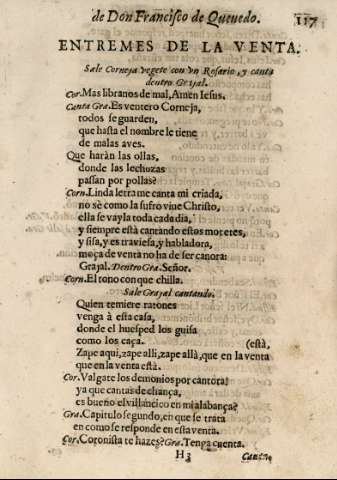 de Don Francisco de Queuedo. 117
ENTREMES DE LA VENTA.
Sale Corneja vegete con vn Rosario, y canta
dentro Grajal.
Cor. Mas libranos de mal, Amen Iesus.
Canta Gra. Es ventero Corneja,
todos se guarden,
que hasta el nombre le tiene
de malas aves.
Que haràn las ollas,
donde las lechuzas
passan por pollas?
Corn. Linda letra me canta mi criada,
no sè como la sufro viue Christo,
ella se vayla toda cada dia,
y siempre està cantando estos motetes,
y sisa, y es traviesa, y habladora,
moça de venta no ha de ser canora:
Grajal. Dentro Gra. Señor.
Corn. El tono con que chilla.
Sale Grajal cantando.
Quien temiere ratones
venga à esta casa,
donde el huesped los guisa
como los caça. (està,
Zape aqui, zape alli, zape allà, que en la venta
que en la venta està.
Cor. Valgate los demonios por cantora!
ya que cantas de chança,
es bueno el villancico en mi alabança?
Gra. Capitulo segundo, en que se trata
en como se responde en esta venta.
Cor. Coronista te hazes? Gra. Tenga cuenta.
H3